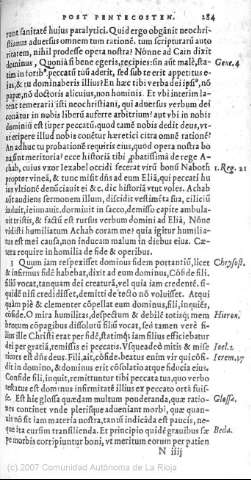 POST PENTECOSTEN. 284
runt sanitatē huius paralytici. Quid ergo obgānit neochri-
stianus aduersus omnem tum rationē. tum scripturarū auto
ritatem, nihil prodesse opera nostra? Nōnne ad Cain dixit
dominus, Quoniā si bene egeris, recipies: sin aūt malè, sta- Gene.4
tim in forib⁹, peccatū tuū aderit, sed sub te erit appetitus e-
ius, & tu dominaberis illius? En hæc tibi verba dei ipsi⁹, nō
papæ, nō doctoris alicuius, neq; hominis. Et vbi interim la-
tent temerarii isti neochristiani, qui aduersus verbum dei
conātur in nobis liberū auferre arbitrium? aut vbi in nobis
dominiū est super peccatū: quod tamē nobis dedit deus, ve-
re eripere illud nobis conētur hæretici citra omnē rationē?
An adhuc tu probationē requiris eius, quod opera nostra bo
na, sint meritoria? ecce historia tibi
Achab, cuius vxor Iezabel occidi fecerat virū bonū Naboth 1.Reg.21
propter vineā, & tunc misit dñs ad eum Eliā, qui peccati hu
ius vltionē denūciauit ei &c. dic historiā vtut voles. Achab
aūt audiens sermonem illum, discidit vestimēta sua, cilicio
induit, ieiunauit, dormiuit in sacco, demisso capite ambula-
uit: tristis, & factū est rursus verbum domini ad Eliā, Nōne
vidisti humiliatum Achab coram me? quia igitur humilia-
tus est mei causa, non inducam malum in diebus eius. Cæ-
tera require in homilia de fide & operibus.
¶ Quum iam respexisset dominus fidem portantiū, licet Chrysost.
& infirmus fidē habebat, dixit ad eum dominus, Cōfide fili.
filiū vocat, tanquam dei creaturā, vel quia iam credenté. si-
quidē nisi credidisset, demitti de tecto nō voluisset. Atqui
quàm piè & clementer cōpellat eum dominus, fili, inquiēs,
cōfide. O mira humilitas, despectum & debilē totisq; mem Hieron.
brorum cōpagibus dissolutū filiū vocat, seō tamen verē fi-
lius ille Christi erat per fidē, statimq; iam filius efficiebatur
dei per gratiā, remissis ei peccatis. Vsqueadeō mitis & mise Ioel.2
ricors est dñs deus. Fili, ait, cōfide. beatus enim vir qui cōfi- Ierem.17
dit in domino, & dominus erit cōsolatio atque fiducia eius.
Confide fili, inquit, remittuntur tibi peccata tua, quo verbo
testatus est dominus infirmitatē illius ex peccato ortā fuis-
se. Est hic glossa quædam multum ponderanda, quæ ratio- Glossa.
nes continet vnde plerisque adueniant morbi, quæ quan-
uis nō sit iam materia nostra, tantū indicāda est paucis, ne-
que ita cursim transilienda. Et principio quidē grauibus sæ Beda.
pe morbis corripiuntur boni, vt meritum eorum per patien
N iiij
(c) 2007 Comunidad Autónoma de La Rioja